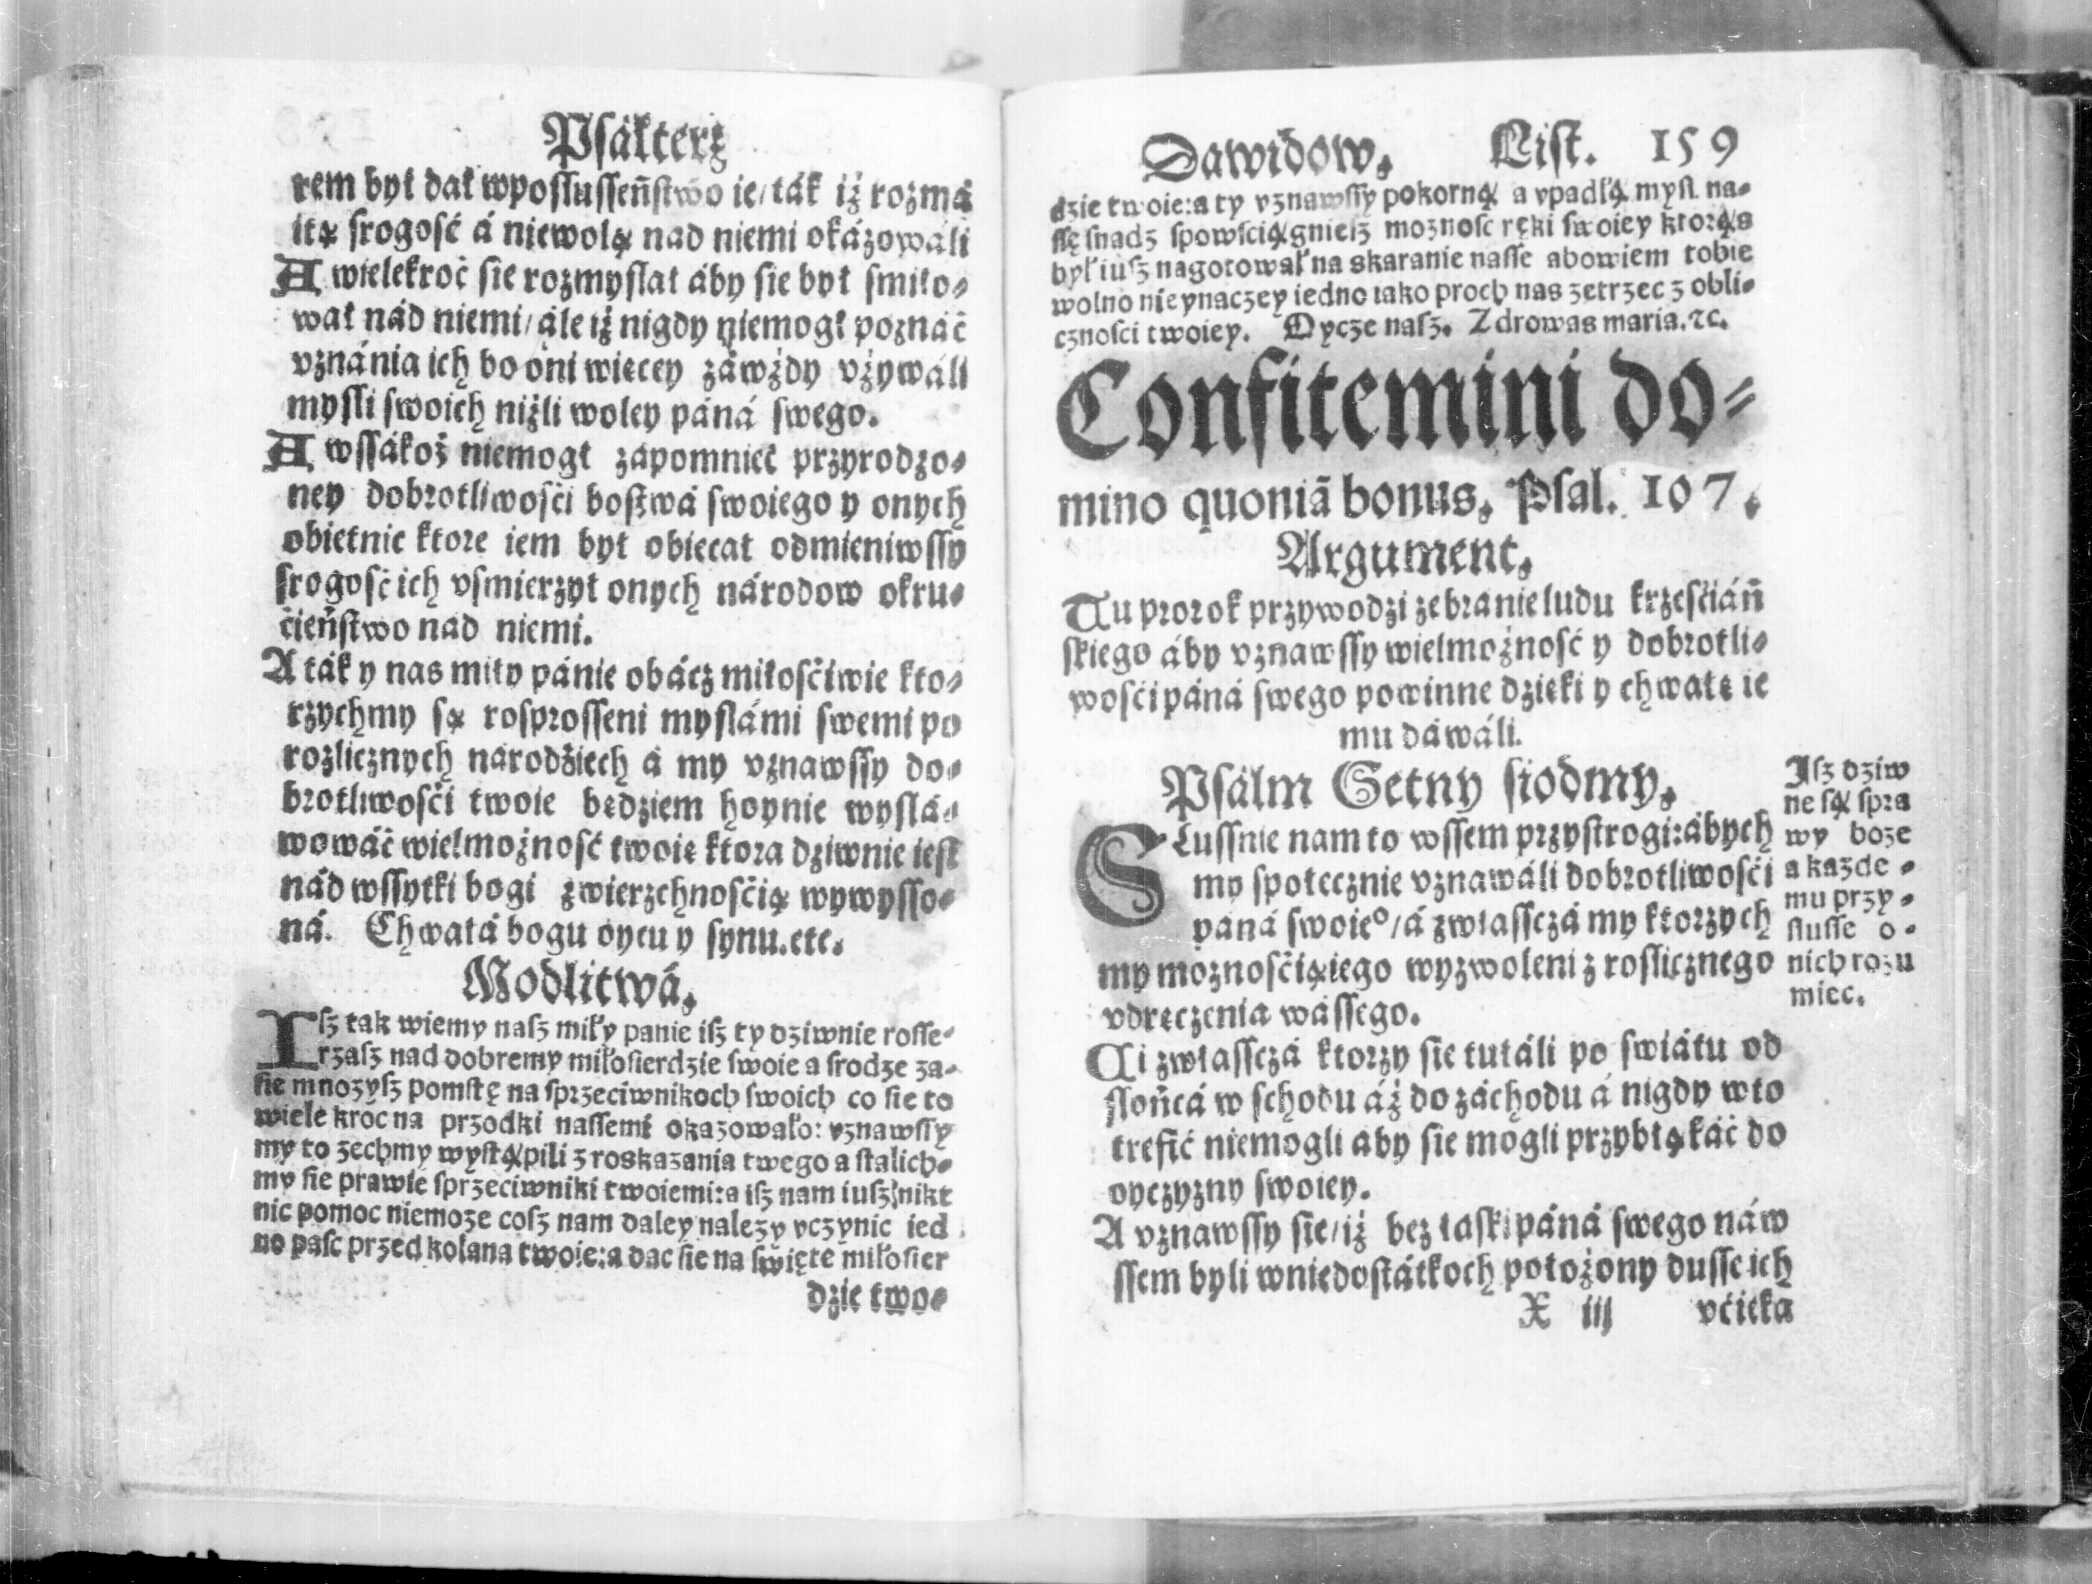 Psałterz
rem był dał wposſluſſeńſtwo ie/ták iż rozmá
itą ſrogość á niewolą nad niemi okázowáli
A wielekroć ſie rozmyſlał áby ſie był ſmiło⸗
wał nád niemi/ ále iż nigdy niemogł poznáć
vznánia ich bo oni więcey záwżdy vżywáli
myſli ſwoich niżli woley páná ſwego.
A wſſákoż niemogł zápomnieć przyrodzo⸗
ney dobrotliwośći boſtwá ſwoiego y onych
obietnic ktore iem był obiecał odmieniwſſy
ſrogość ich vſmierzył onych národow okru⸗
ćieńſtwo nad niemi.
A ták y nas miły pánie obácz miłośćiwie kto⸗
rzychmy ſą roſproſſeni myſlámi ſwemi po
rozlicznych narodźiech á my vznawſſy do⸗
brotliwośći twoie będziem hoynie wyſlá⸗
wowáć wielmożność twoię ktora dziwnie ieſt
nád wſſytki bogi zwierzchnośćią wywyſſo⸗
ná. Chwałá bogu oycu y ſynu.etc.
Modlitwá.
Iſz tak wiemy naſz miły panie iſz ty dziwnie roſſe⸗
rzaſz nad dobremy miłoſierdzie ſwoie a ſrodze za⸗
ſie mnozyſz pomſtę na ſprzeciwnikoch ſwoich co ſie to
wiele kroc na przodki naſſemi okazowało: vznawſſy
my to zechmy wyſtąpili z roskazania twego a ſtalich⸗
my ſie prawie ſprzeciwniki twoiemi:a iſz nam iuſz nikt
nic pomoc niemoze coſz nam daley nalezy vczynic ied
no paſc przed kolana twoie:a dac ſie na ſwięte miłoſier
dzie two⸗
Dawidow. Liſt. 159
dzie twoie:a ty vznawſſy pokorną a vpadłą myſl na⸗
ſſę ſnadz ſpowſciągnieſz moznoſc ręki ſwoiey ktorąs
był iuſz nagotował na skaranie naſſe abowiem tobie
wolno nieynaczey iedno iako proch nas zetrzec z obli⸗
cznoſci twoiey. Oycze naſz. Zdrowas maria.⁊c.
Confitemini do⸗
mino quoniã bonus. Pſal. 107.
Argument.
Tu prorok przywodzi zebranie ludu krześćiáń
ſkiego áby vznawſſy wielmożność y dobrotli⸗
wośći páná ſwego powinne dzięki y chwałę ie
mu dáwáli.
Pſálm Setny ſiodmy.
Sluſſnie nam to wſſem przyſtrogi:ábych
my ſpołecznie vznawáli dobrotliwośći
páná ſwoieº/á zwłaſſczá my ktorzych
my możnośćią iego wyzwoleni z roſlicznego
vdręczenia wáſſego.
Ci zwłaſſczá ktorzy ſie tułáli po ſwiátu od
ſłońcá w ſchodu áż do záchodu á nigdy w to
trefić niemogli áby ſie mogli przybłąkáć do
oyczyzny ſwoiey.
A vznawſſy ſie/iż bez łaſki páná ſwego náw
ſſem byli wniedoſtátkoch położony duſſe ich
X iij vćieka
Iſz dziw
ne ſą ſpra
wy boze
a kazde⸗
mu przy⸗
ſluſſe o⸗
nich rozu
miec.